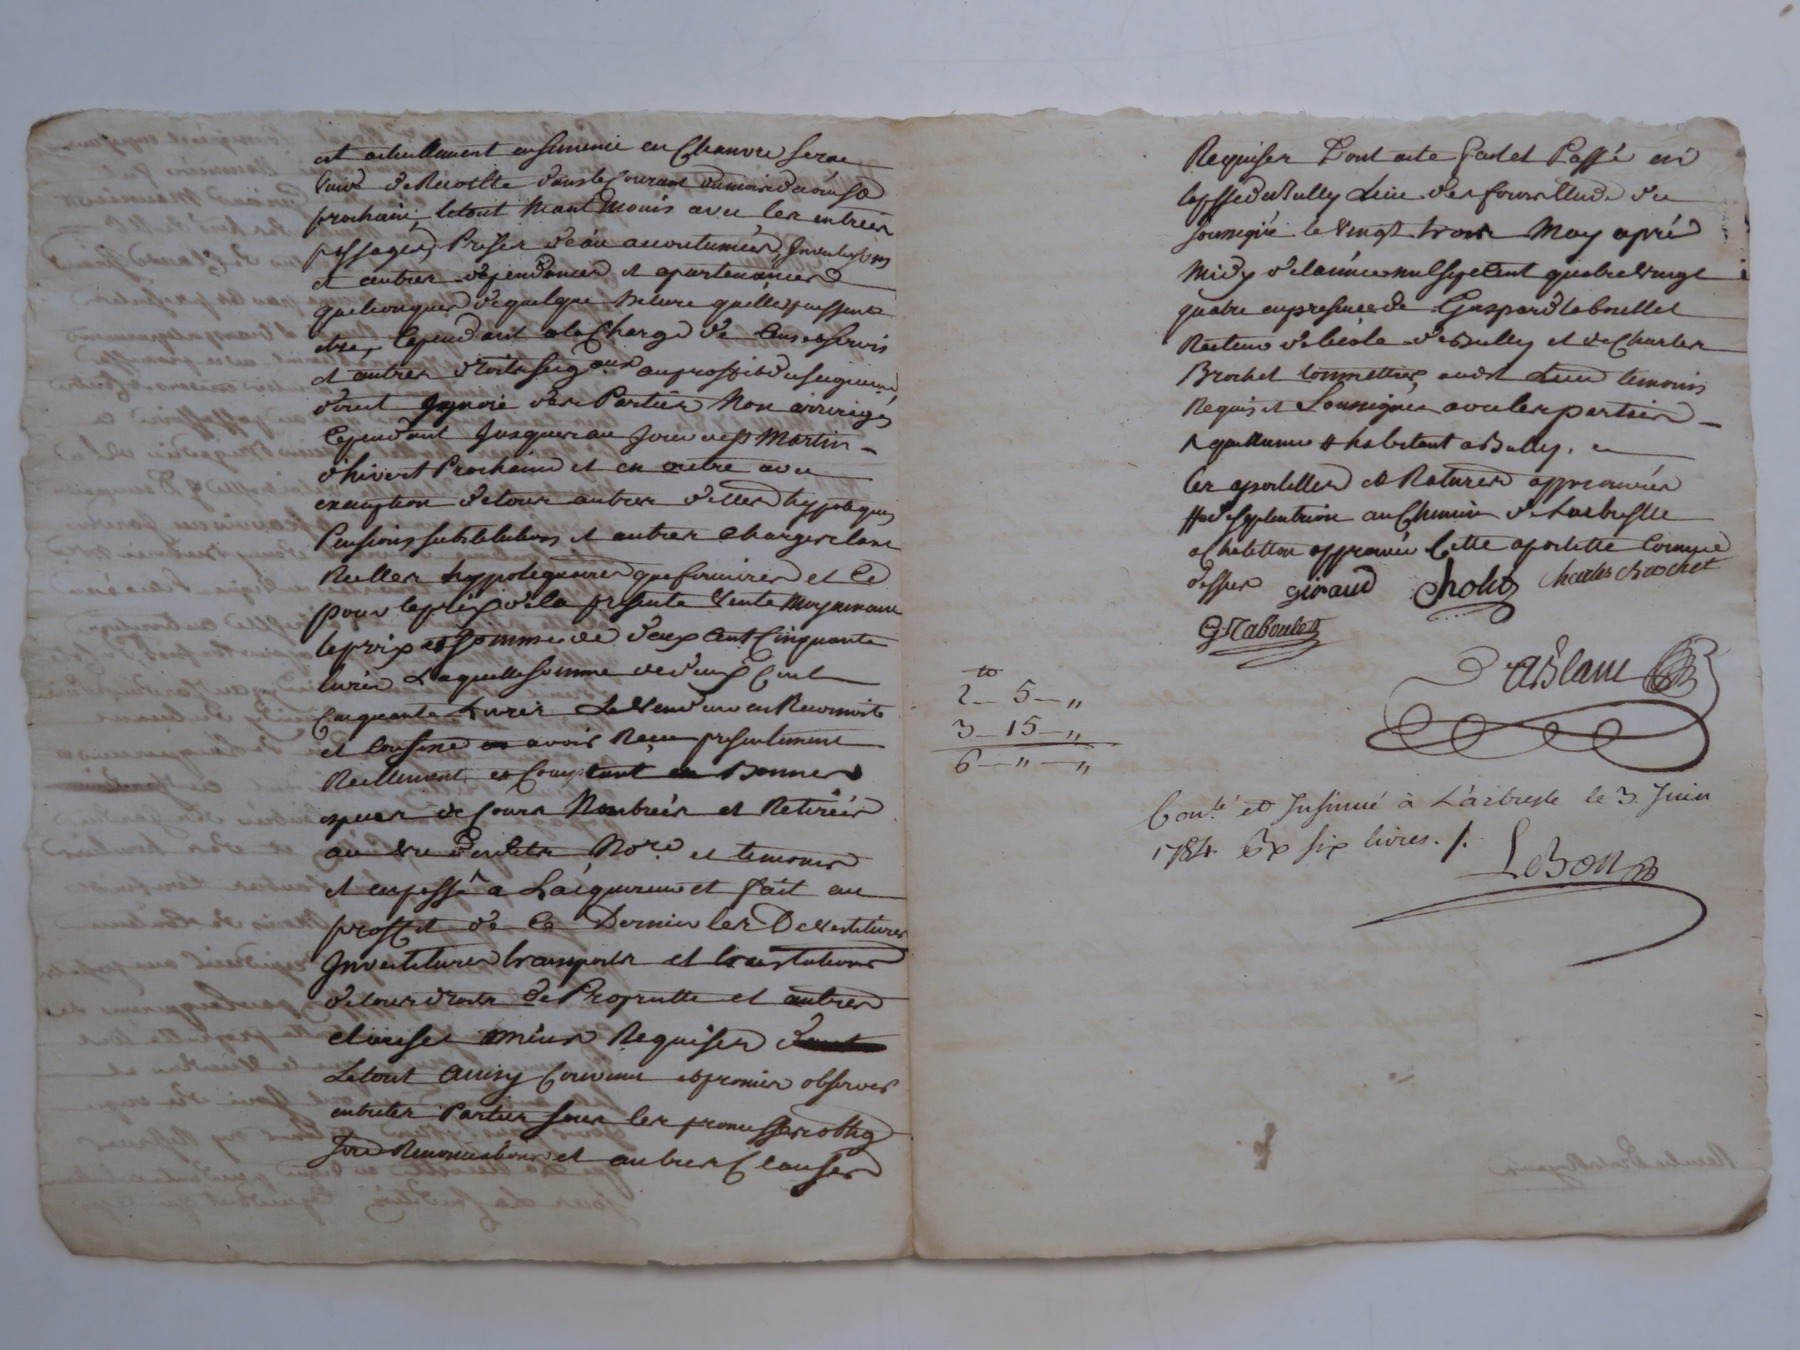 est actuellement ensemencé en Chanvre sera
vuidé de Recolte dans le Courant du mois d'aoust
prochain, le tout Maintmouis avec les entrées
passages, Prises d'eau accoutumées,
et autres dependances et apartenances
quelconques de quelque Nature qu'elles puissent
etre, Cependant a la Charge de Cens et servis
et autres droits seig.aux au proffit du seigneur
dont Ignoré des Parties Non arreragé
Cependant Jusques au Jour de st Martin
d'hivert Prochain et en outre avec
exemption de tous autres dettes hypoteques
Pensions substitutions et autres Charges tant
Reelles hypotequaires que foncieres et Ce
pour le prix de la presente Vente Moyennant
le prix et somme de deux Cent Cinquante
livres Laquelle somme de deux Cent
Cinquante Livres Le Vendeur en Reconnoit
et Confesse avoir Reçu presentement
Reellement et Comptant en Bonnes
especes de Cours Nombrées et Retirées
au Vu dudit Nore. et temoins
et en passe a L'acquereur et fait au
proffit de Ce Dernier les Devestitures
Investitures transports et translations
de tous droits de Proprieté et autres
clauses mieux Requises
Le tout Ainsy Convenu et promis observer
entre les Parties sous les promesses oblig
Jons Renonciations et autres Clauses
Requises Dont acte fait et Passé en
la psse de Bully Lieu des fours Etude du
soussigné le Vingt trois May aprés
Midy de l'année mil sept Cent quatre Vingt
quatre en presence de Gaspard taboullet
Recteur de l'ecole de Bully et de Charles
Brochet audt Lieu temoins
Requis et Soussignés avec les parties
habitant a Bully.
Les apostilles et Ratures approuvées
# de Septentrion au Chemin de Larbresle
a Chatillon approuvée Cette apostille Comme
dessus Giraud Cholet Charles Brochet
G Taboulet
DABlanc
to
2 — 5 — „
3 — 15 — „
6 — „ — „
Conlé. et Insinué à L'arbresle le 3. Juin
1784. Rx six livres. /.
LeBon